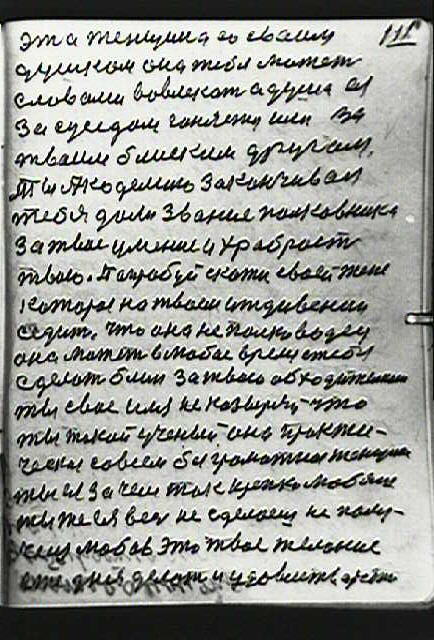 эта женщина со своим 111
душком она тебя может
словами вовлекат а душа ея
За суседом гоняжи или за
твоим блиским другом.
Ты Акодемию Закончивал
тебя дали Звание полковника
За твое умение и храброст
твою. Попробуй скажи своей жене
которое на твоем иждивении
седит. что она не полководец
она может в любое время тебя
сделат блин За твою
ты свое имя не козыряй что
ты такой ученый, она практи-
чески совсем без граматная женщина
ты ея Зачем так крепко любиш
ты же ея вед не сделаеш не полу-
чиш любов Это твое желание
еже дней делат и удовлетварят